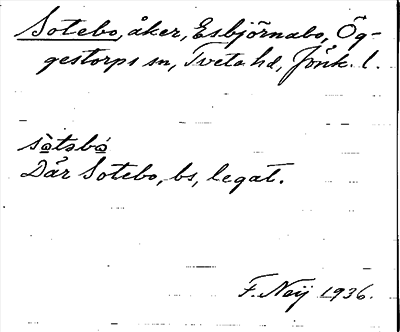 Sotebo, åker, Esbjörnabo, Ög-
gestorps sn, Tveta hd, Jönk. l.
sòtəbó
Där Sotebo, bs, legat.
F. Neij 1936.